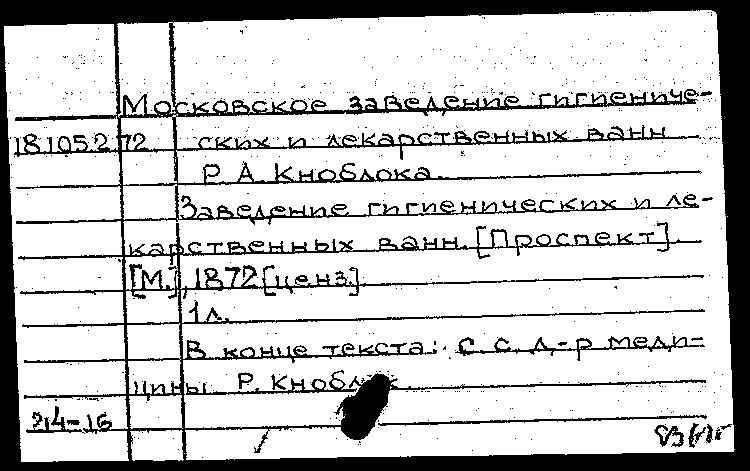 Московское заведение гигиениче-
18.105.2.72 ских и лекарственных ванн
Р. А. Кноблока.
Заведение гигиенических и ле-
карственных ванн. [Проспект].
[М.], 1872 [ценз.]
1 л.
В конце текста: с. с. д-р меди-
цины Р. Кноблок.
214-16